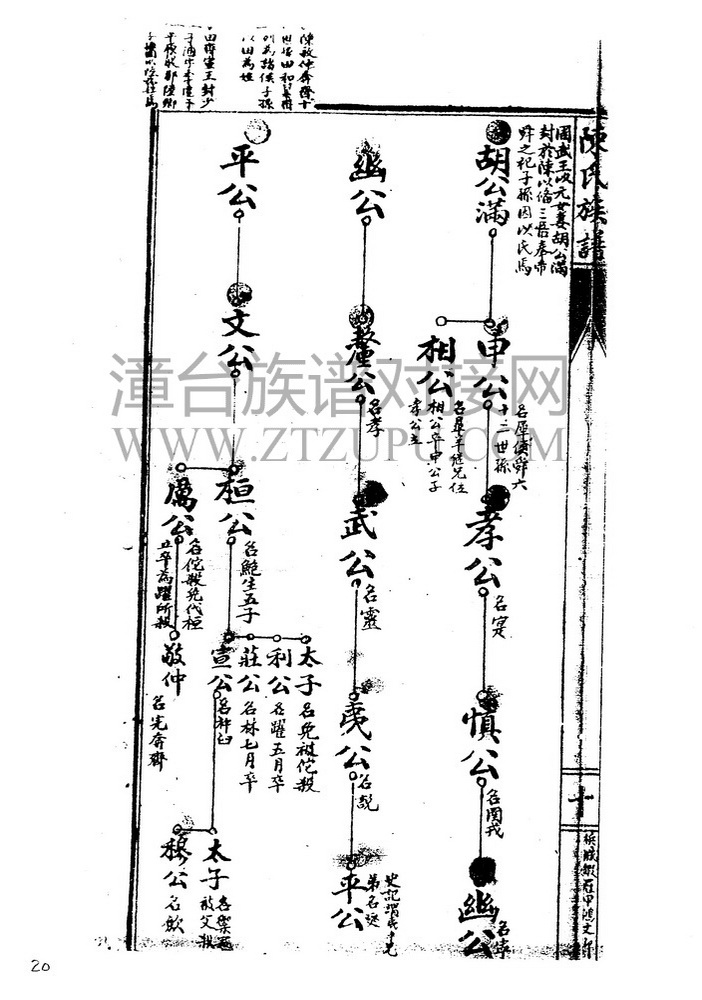 陳氏族譜
十
周武王以元女妻胡公滿
封於陳以備三恪奉帝
舜之祀子孫因以氏焉
胡公滿
申公
名犀侯舜六
十二世孫
相公
名臯羊繼兄位
相公卒申公子
孝公立
孝公
名突
慎公
名圉戎
幽公
名寧
幽公
釐公
名孝
武公
名靈
夷公
名說
平公
平公
文公
桓公
名鮑生五子
厲公
名佗殺免代桓
立卒為躍所殺
太子
名免被佗殺
利公
名躍五月卒
莊公
名林七月卒
宣公
名杵臼
敬仲
名完奔齊
太子
被父殺
穆公
名款
陳敬仲奔齊十
以田為姓
田齊宣王封少
漳台族谱对接网
WWW.ZTZUPU.COM
20